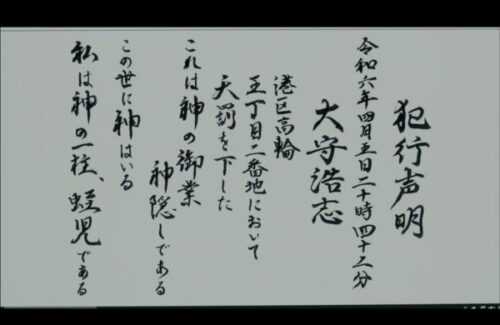 犯行声明
令和六年四月五日二十時四十二分
大守浩志
港区高輪
五丁目二番地において
天罰を下した
これは神の御業
神隠しである
この世に神はいる
私は神の一柱、蛭児である